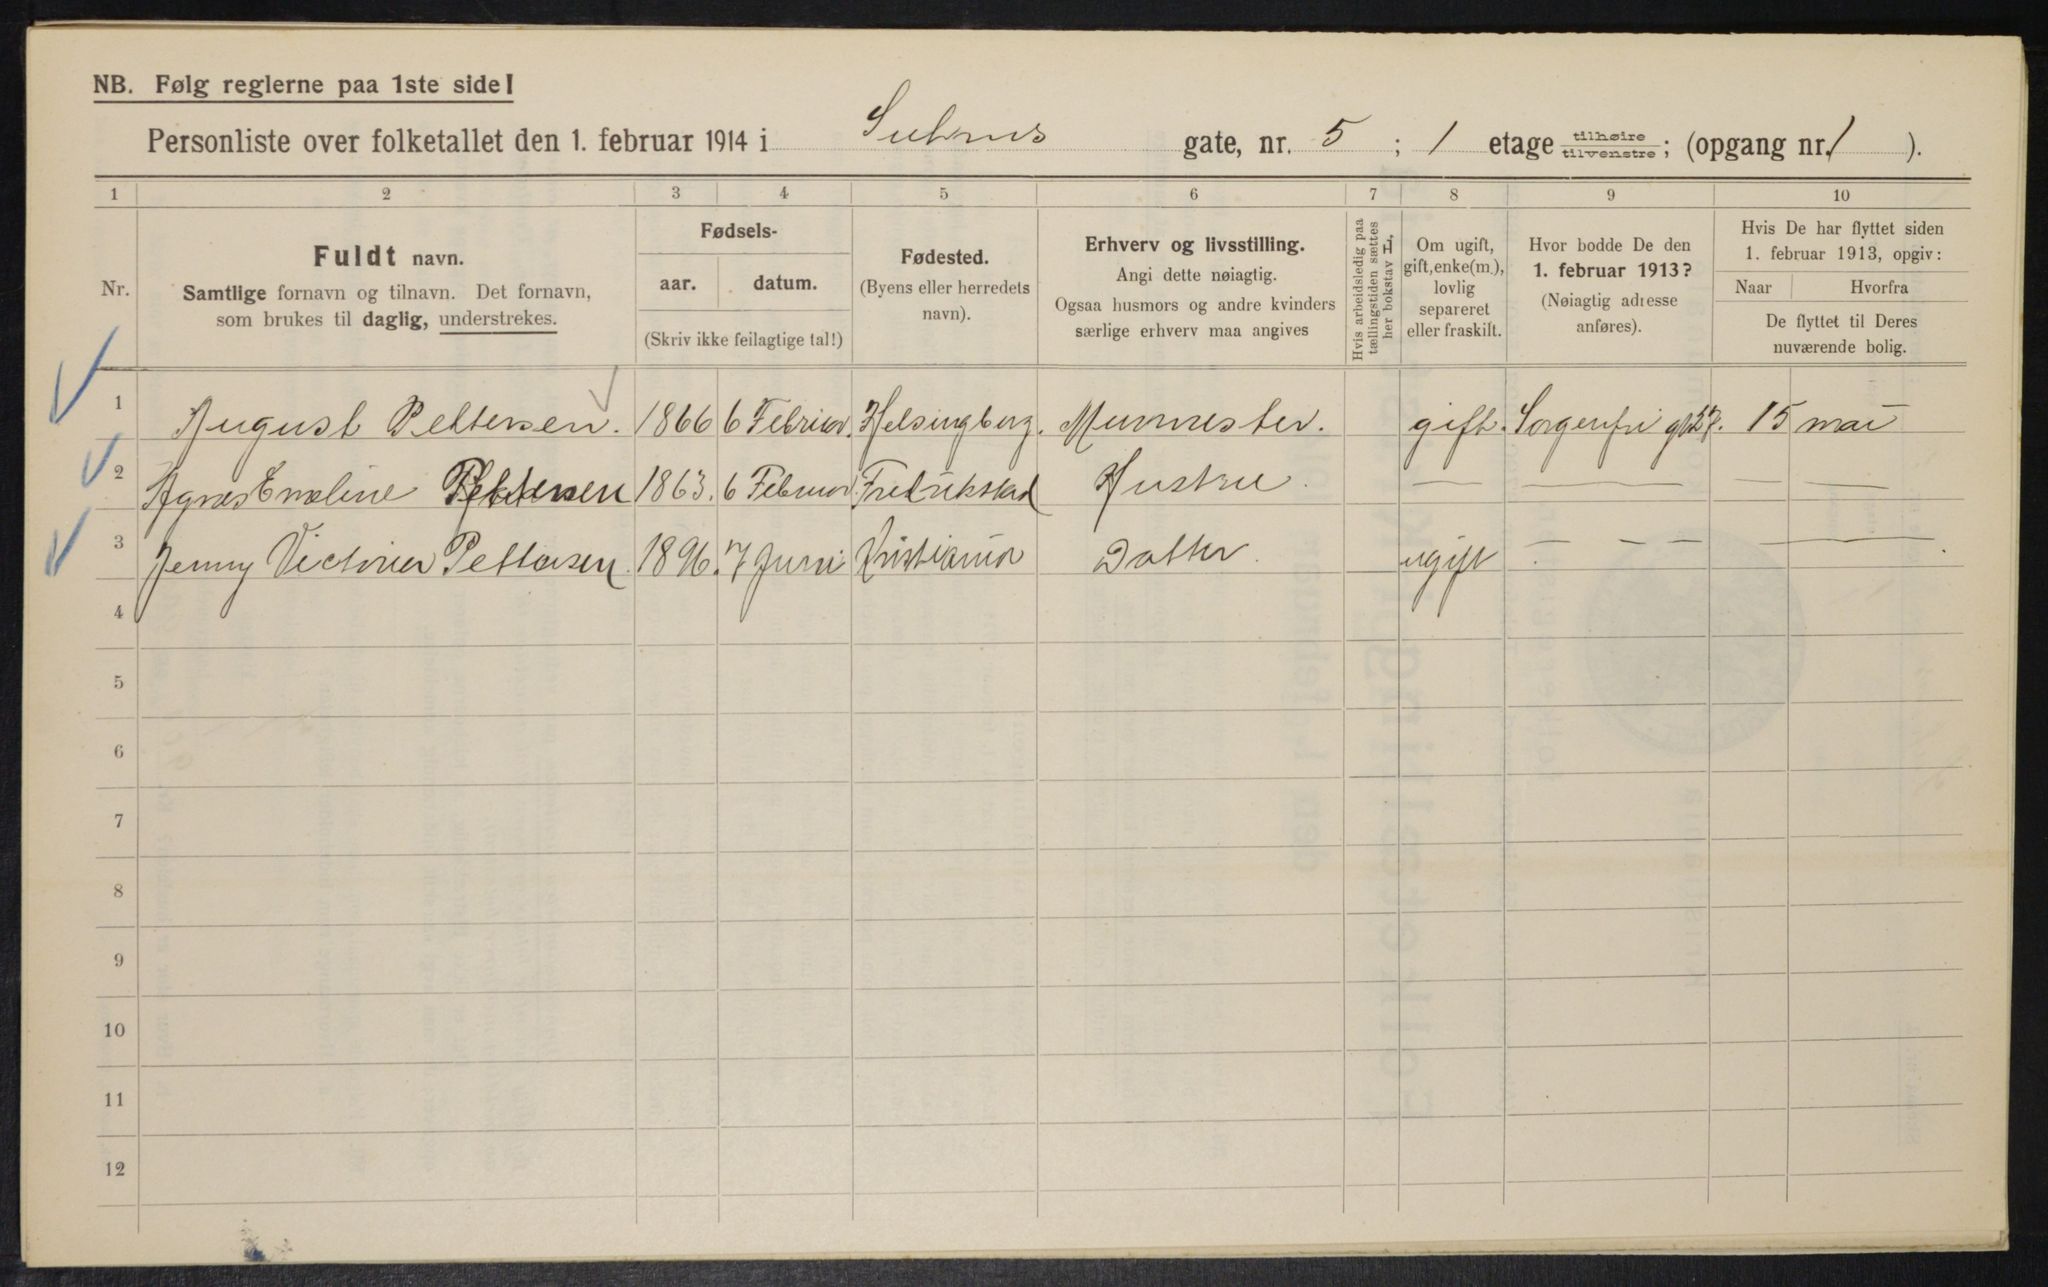 NB. Følg reglerne paa 1ste side!
Personliste over folketallet den 1. februar 1914 i Suhms gate, nr. 5 ; 1 etage tilhøire/tilvenstre; (opgang nr. 1 ).
1 2 3 4 5 6 7 8 9 10
Nr.
Fuldt navn.
Samtlige fornavn og tilnavn. Det fornavn,
som brukes til daglig, understrekes.
Fødsels-
aar. datum.
(Skriv ikke feilagtige tal!)
Fødested.
(Byens eller herredets
navn).
Erhverv og livsstilling.
Angi dette nøiagtig.
Ogsaa husmors og andre kvinders
særlige erhverv maa angives
Hvis arbeidsledig paa
tællingstiden sættes
her bokstav L.
Om ugift,
gift, enke(m.),
lovlig
separeret
eller fraskilt.
Hvor bodde De den
1. februar 1913?
(Nøiagtig adresse
anføres).
Hvis De har flyttet siden
1. februar 1913, opgiv:
Naar Hvorfra
De flyttet til Deres
nuværende bolig.
1 August Pettersen. 1866 6 Februar. Helsingborg. Murmester. gift. Sorgenfri gt 27. 15 mai
2 Agnes Emeline Pettersen 1863. 6 Februar Fredrikstad Hustru. — — — —
3 Jenny Victoria Pettersen. 1896. 7 Juni Kristiania Datter. ugift — — — —
4
5
6
7
8
9
10
11
12